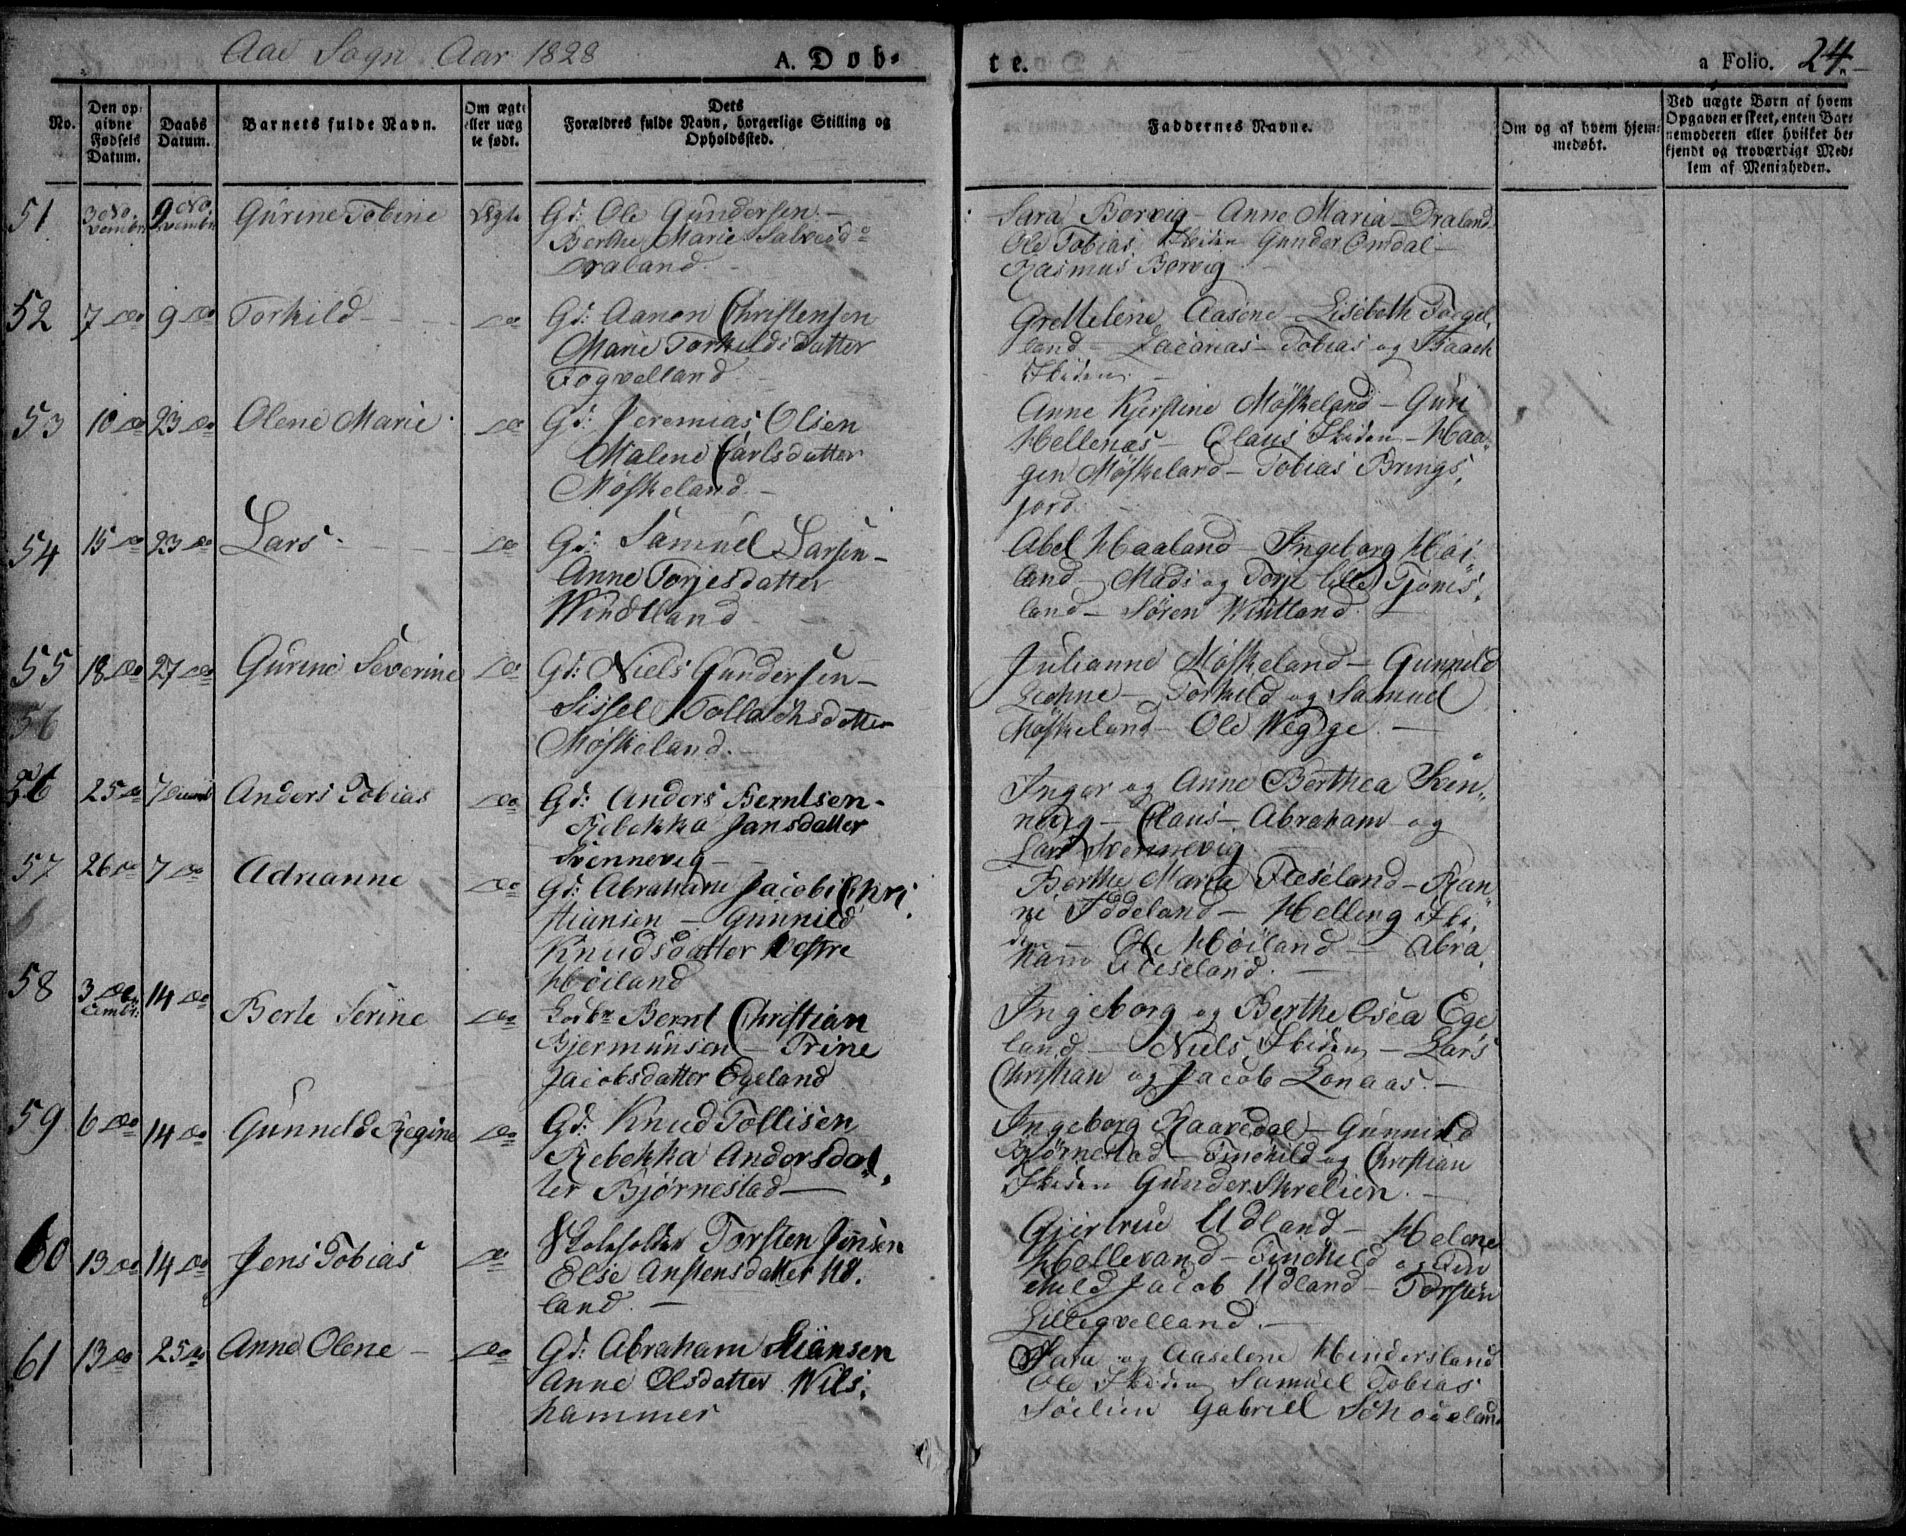 Aae Sogn Aar 1828
A. Døb-
te.
a Folio. 24.
No.
Den op-
givne
Fødsels
Datum.
Daabs
Datum.
Barnets fulde Navn.
Om ægte
eller uæg-
te født.
Dets
Forældres fulde Navn, borgerlige Stilling og
Opholdssted.
Faddernes Navne.
Om og af hvem hjem-
medøbt.
Ved uægte Børn af hvem
Opgaven er skeet, enten Bar-
nemoderen eller hvilket be-
kjendt og troværdigt Med-
lem af Menigheden.
51 3 No-
vembr 9 No-
vembr Gurine Tobine Ægte Gd: Ole Gundersen -
Berthe Marie Salves do
Draland. -
Sara Borvig - Anne Maria Draland
Ole Tobias Skiden Gunder Omdal -
Rasmus Borvig
52 7 do 9 do Torkild - do Gd: Aanon Christensen
Marie Torkildsdatter
Fogvelland. -
Grethelene Aasene - Lisebeth Foegel,
land - Zacarias - Tobias og Isaach
Skiden -
53 10 do 23 do Olene Marie do Gd: Jeremias Olsen
Malene Carlsdatter
Møskeland. -
Anne Kjerstine Møskeland - Guri
Hellenæs - Olaus Skiden - Haa-
gen Møskeland - Tobias Brings,
jord.
54 15 do 23 do Lars - do Gd: Samuel Larsen -
Anne Torjesdatter
Windtland -
Abel Haaland - Ingeborg Høi,
land - Madi og Torje lille Tjøms,
land - Søren Windtland. -
55 18 do 27 do Gurine Severine do Gd: Niels Gundersen -
Sissel Tollachsdatter
Møskeland. -
Julianne Møskeland - Gunnild
- Torkild og Samuel
Møskeland - Ole Wegge. -
56
56 25 do 7 Anders Tobias do Gd: Anders Berntsen -
Rebekka Jansdatter
Svennevig -
Inger og Anne Berthea Sven-
nevig - Claus - Abraham og
Lars Svennevig
57 26 do 7 do Adrianne do Gd: Abraham Jacobi Chri,
stiansen - Gunnild
Knudsdatter Vestre
Høiland
Berthe Maria Fleseland - Ran-
ni Fødeland - Helling Ski,
den - Ole Høiland - Abra,
ham Fleseland. -
58 3 De-
cembr. 14 do Berte Serine do Bernt Christian
Bjermunsen - Trine
Jacobsdatter Egeland
Ingeborg og Berthe Osea Ege
land - Niels Skiden - Lars
Christian og Jacob Lonaas. -
59 6 do 14 do Gunneld Regine do Gd: Knud Tollisen
Rebekka Andersdat,
ter Bjørnestad -
Ingeborg Raavedal - Gunnild
Bjørnestad - Tinchild og Christian
Skiden Gunder Skrelien. -
60 13 do 14 do Jens Tobias do Skoleholder Torsten Jensen
Else Anstensdatter Ud,
land. -
Gjertrue Udland - Helene
Hallevand - Tinchild og Din
child Jacob Udland - Torsten
Lilleqvelland. -
61 13 do 25 do Anne Olene - do Gd: Abraham Stiansen
Anne Olsdatter Nils,
hammer
Sara og Aaselene Hindersland
Ole Skiden Samuel Tobias
Søilien Gabriel